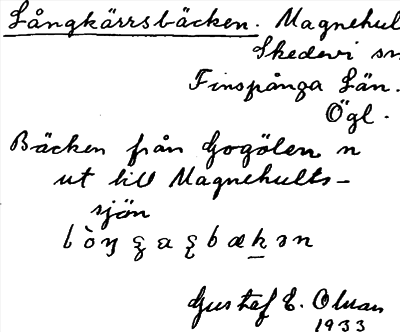 Långkärrsbäcken. Magnehul
Skedevi sn
Finspånga Län.
Ögl.
Bäcken från Gogölen n
ut till Magnehults-
sjön
Gustaf E. Olson
1933